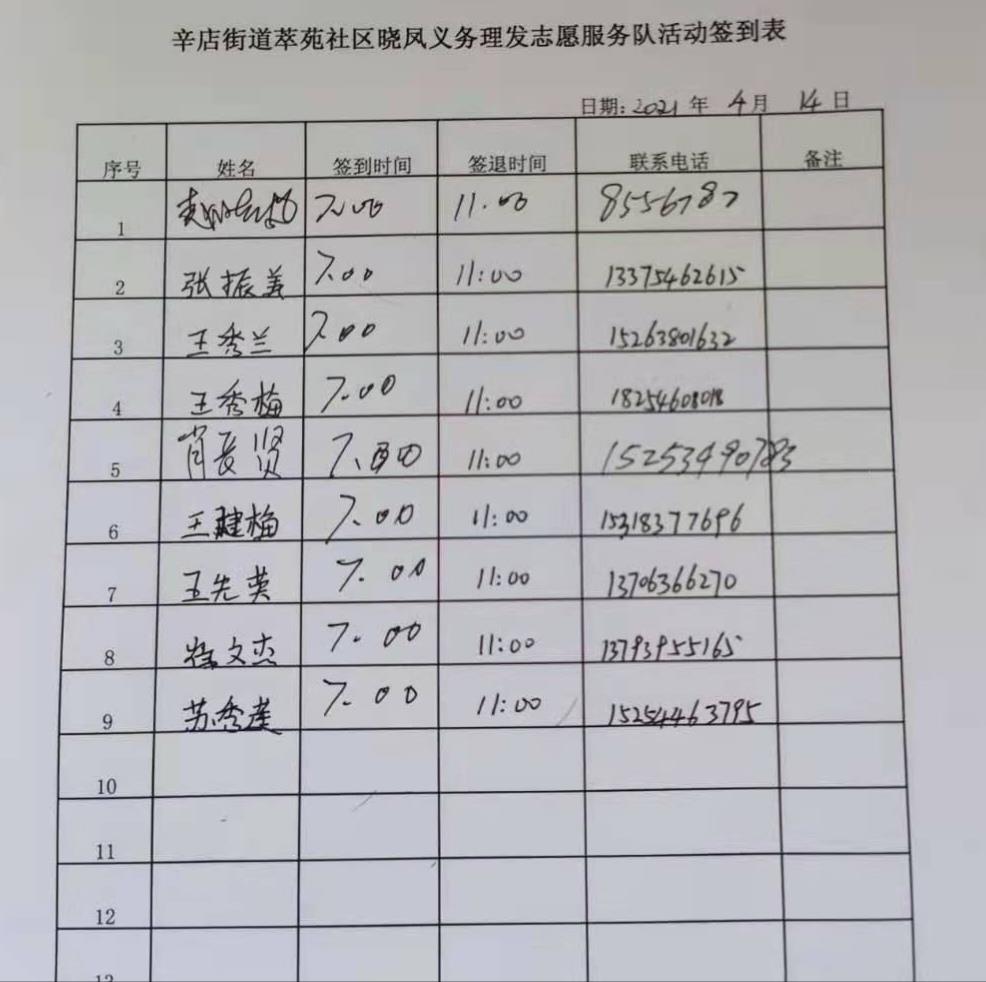 辛店街道萃苑社区晓凤义务理发志愿服务队活动签到表
日期: 2021 年 4 月 14 日
序号 姓名 签到时间 签退时间 联系电话 备注
1 7.00 11.00 8556787
2 张振美 7.00 11:00 13375462615
3 王秀兰 7.00 11:00 15263801632
4 王秀梅 7.00 11:00 18254608018
5 肖长贤 7.00 11:00 15253490783
6 王建梅 7.00 11:00 15318377696
7 王先英 7.00 11:00 13706366270
8 徐文杰 7.00 11:00 13793955165
9 苏秀莲 7.00 11:00 15254463795
10
11
12
13